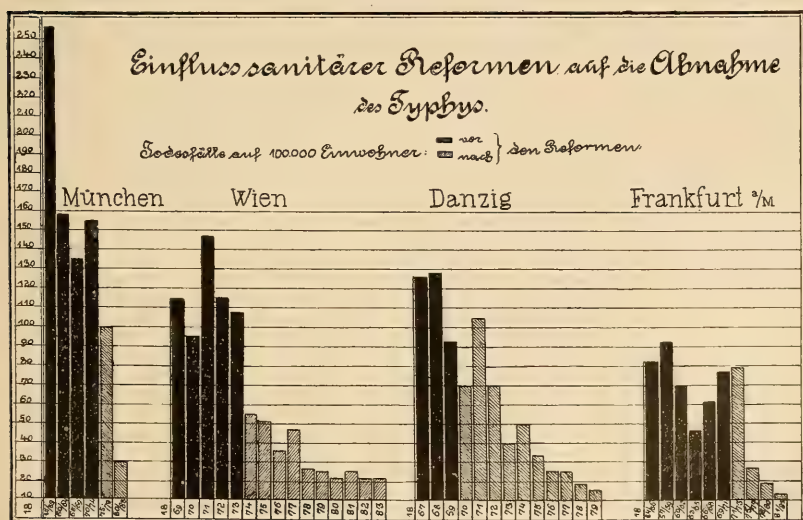 Einfluss sanitärer Reformen auf die Abnahme
des Typhys.
Todesfälle auf 100.000 Einwohner: vor
nach } den Reformen.
München Wien Danzig Frankfurt a/M
250
240
230
220
210
200
190
180
170
160
150
140
130
120
110
100
90
80
70
60
50
40
30
20
10
18 18 69 70 71 72 73 74 75 76 77 78 79 80 81 82 83 18 67 68 69 70 71 72 73 74 75 76 77 78 79 18